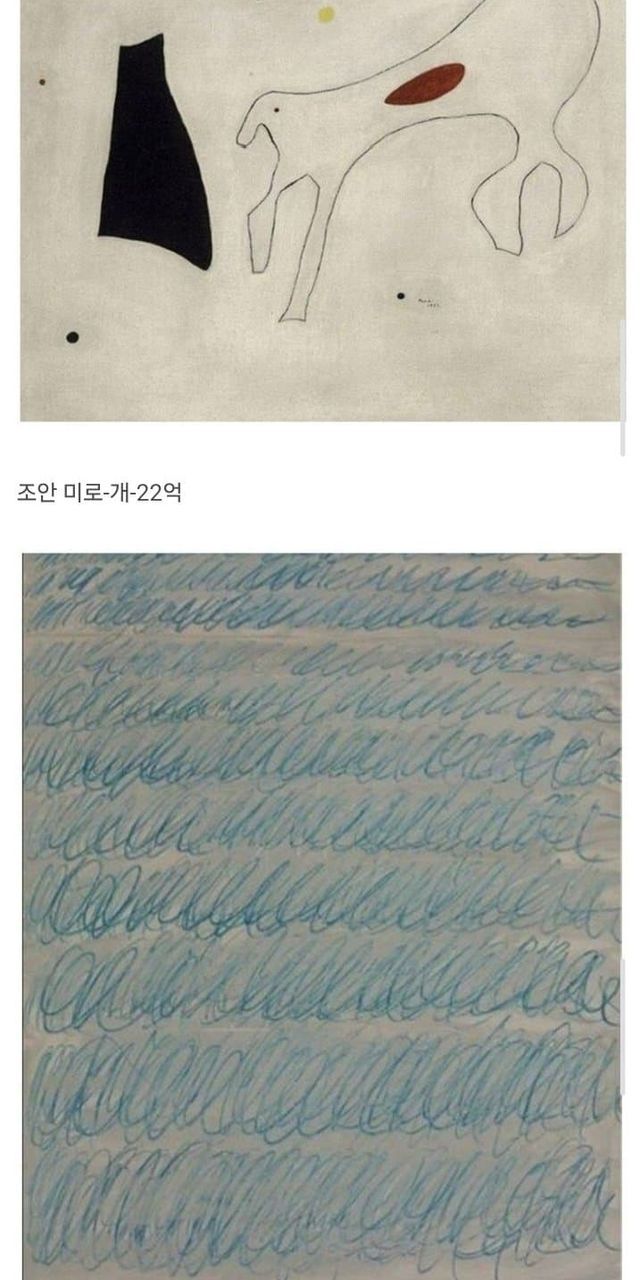 조안 미로-개-22억